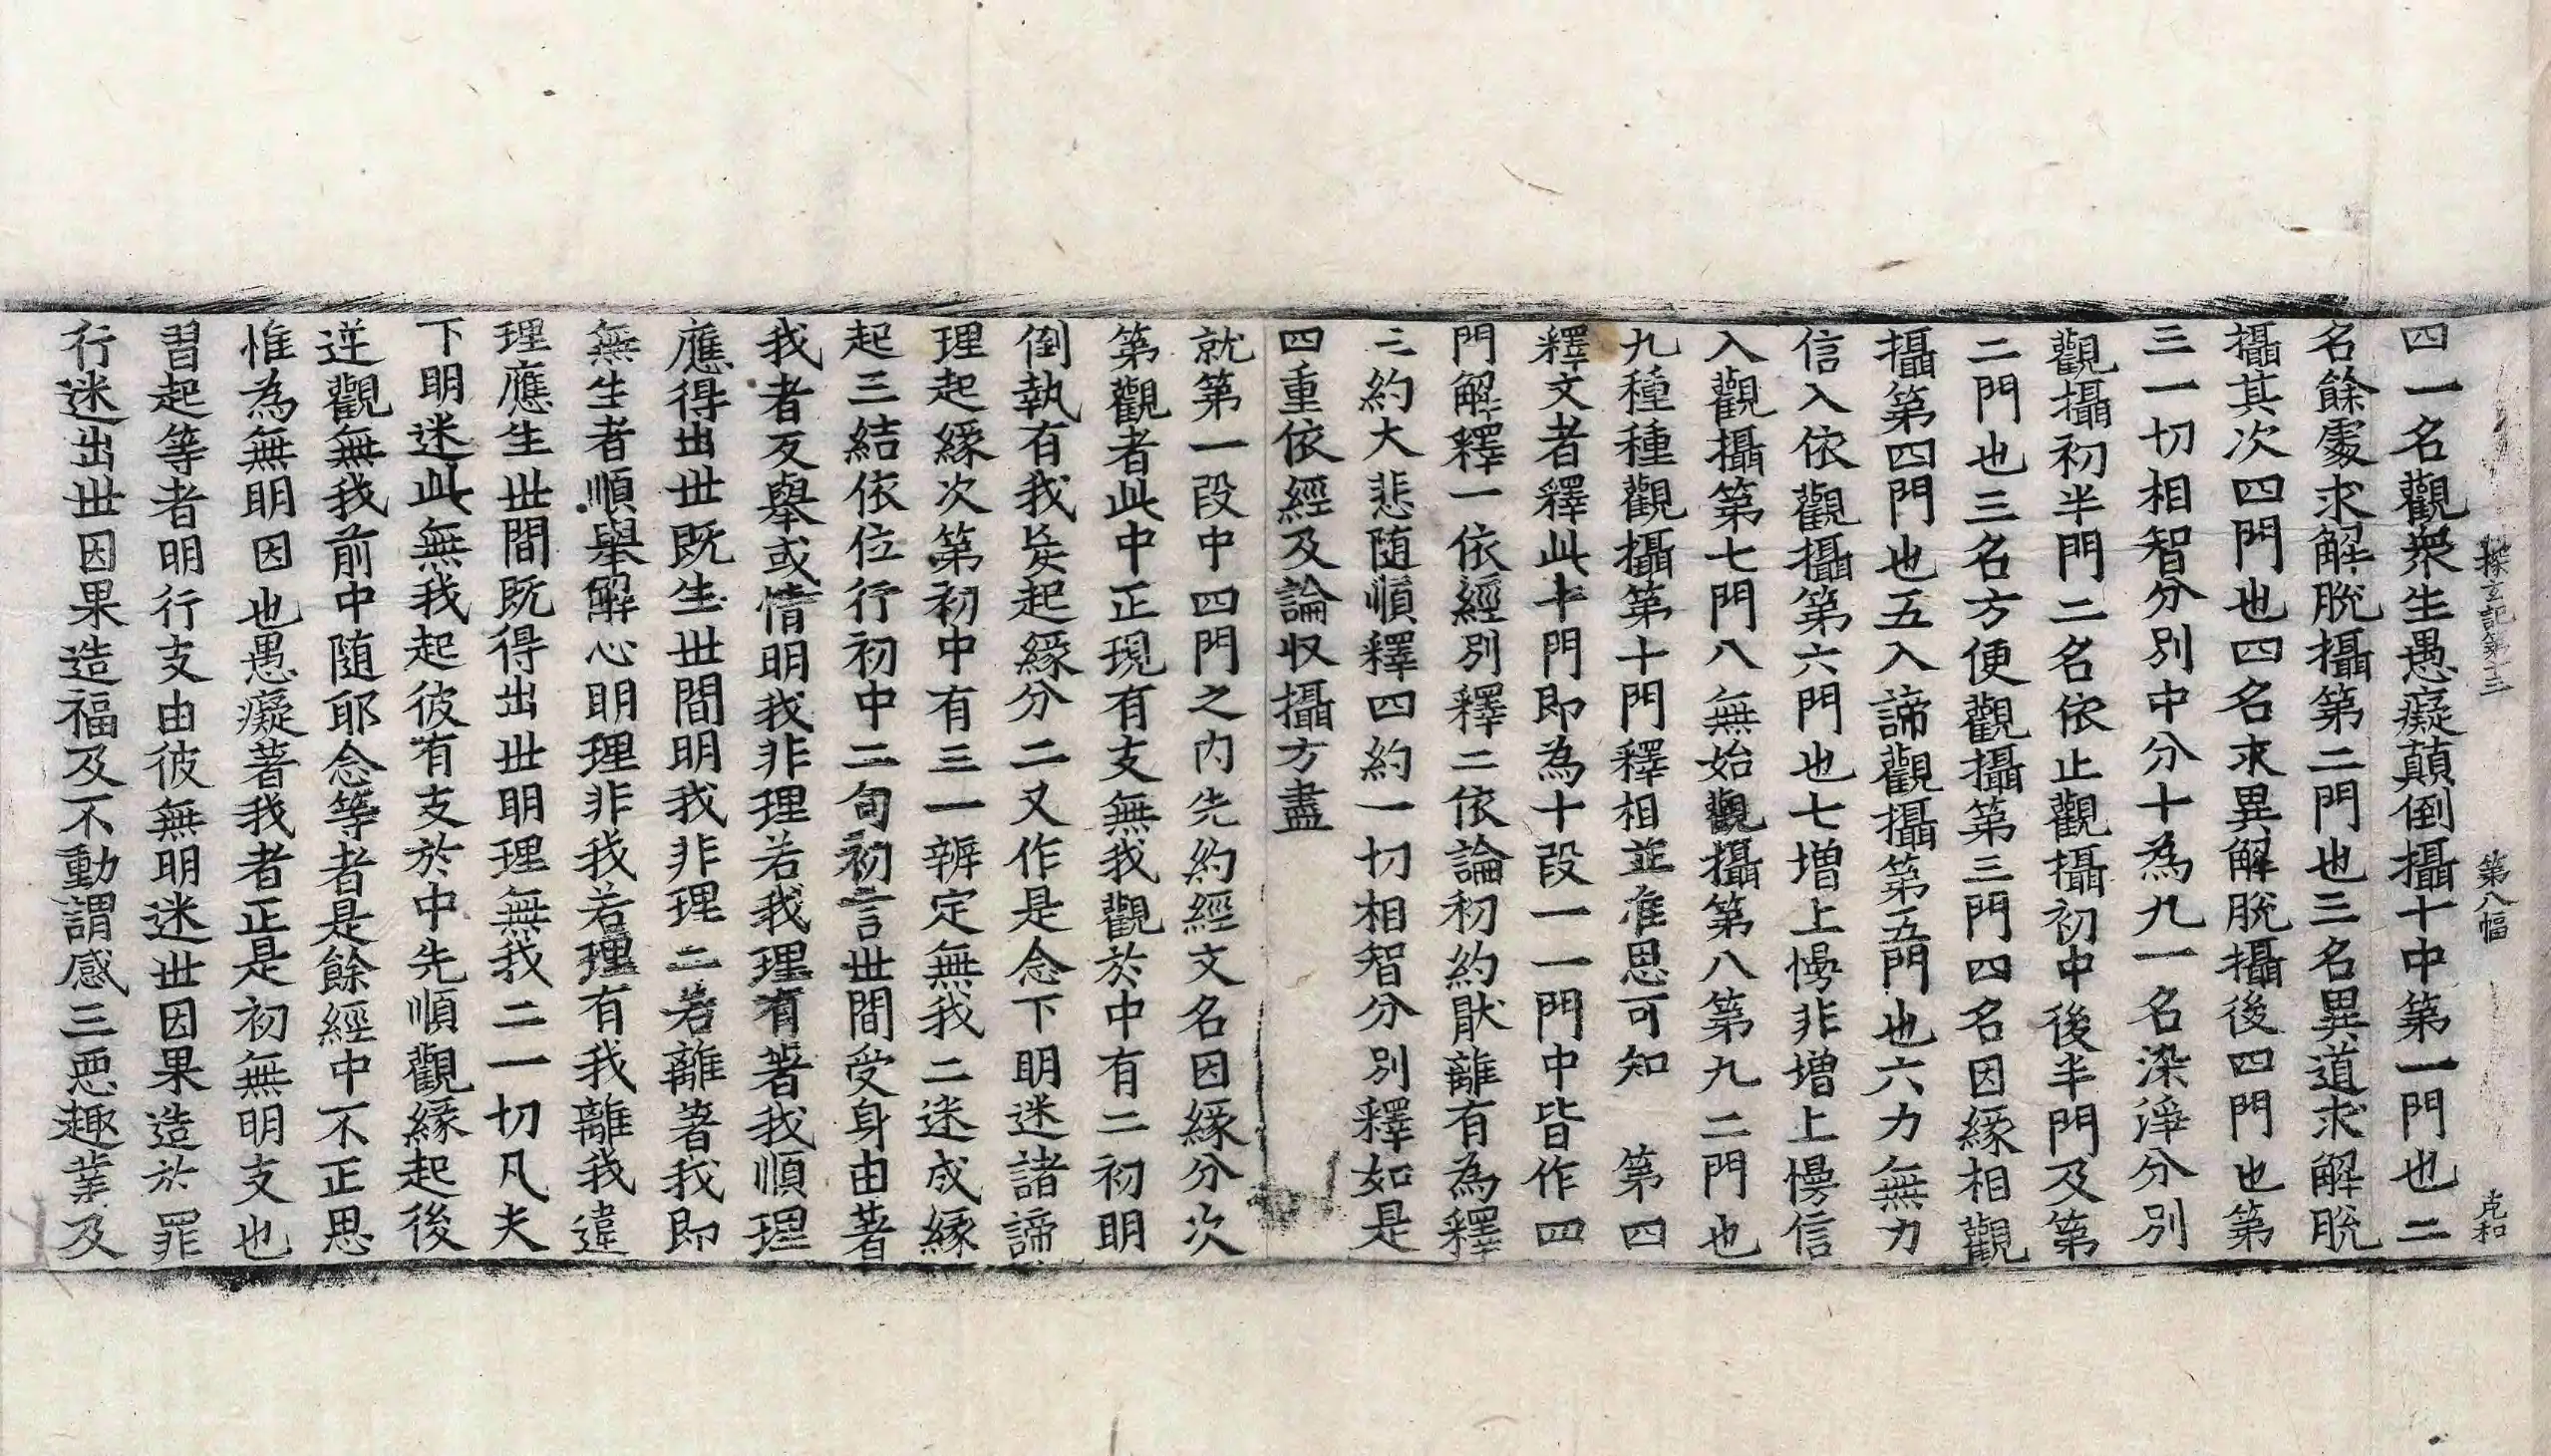 探玄記第十三　第八幅　克和
四一名觀衆生愚癡顛倒攝十中第一門也二
名餘處求解脫攝第二門也三名異道求解脫
攝其次四門也四名求異解脫攝後四門也第
三一切相智分別中分十為九一名染淨分別
觀攝初半門二名依止觀攝初中後半門及第
二門也三名方便觀攝第三門四名因緣相觀
攝第四門也五入諦觀攝第五門也六力無力
信入依觀攝第六門也七增上慢非增上慢信
入觀攝第七門八無始觀攝第八第九二門也
九種種觀攝第十門釋相並准思可知　第四
釋文者釋此十門即為十段一一門中皆作四
門解釋一依經別釋二依論初約猒離有為釋
三約大悲随順釋四約一切相智分別釋如是
四重依經及論収攝方盡
就第一段中四門之內先約經文名因緣分次
第觀者此中正現有支無我觀於中有二初明
倒執有我矣起緣分二又作是念下明迷諸諦
理起緣次第初中有三一辨定無我二迷成緣
起三結依位行初中二句初言世間受身由著
我者反舉或情明我非理若我理有著我順理
應得出世既生世間明我非理二若離著我即
無生者順舉解心明理非我若理有我離我違
理應生世間既得出世明理無我二一切凡夫
下明迷此無我起彼有支於中先順觀緣起後
逆觀無我前中随耶念等者是餘經中不正思
惟為無明因也愚癡著我者正是初無明支也
習起等者明行支由彼無明迷世因果造於罪
行迷出世因果造福及不動謂感三惡趣業及